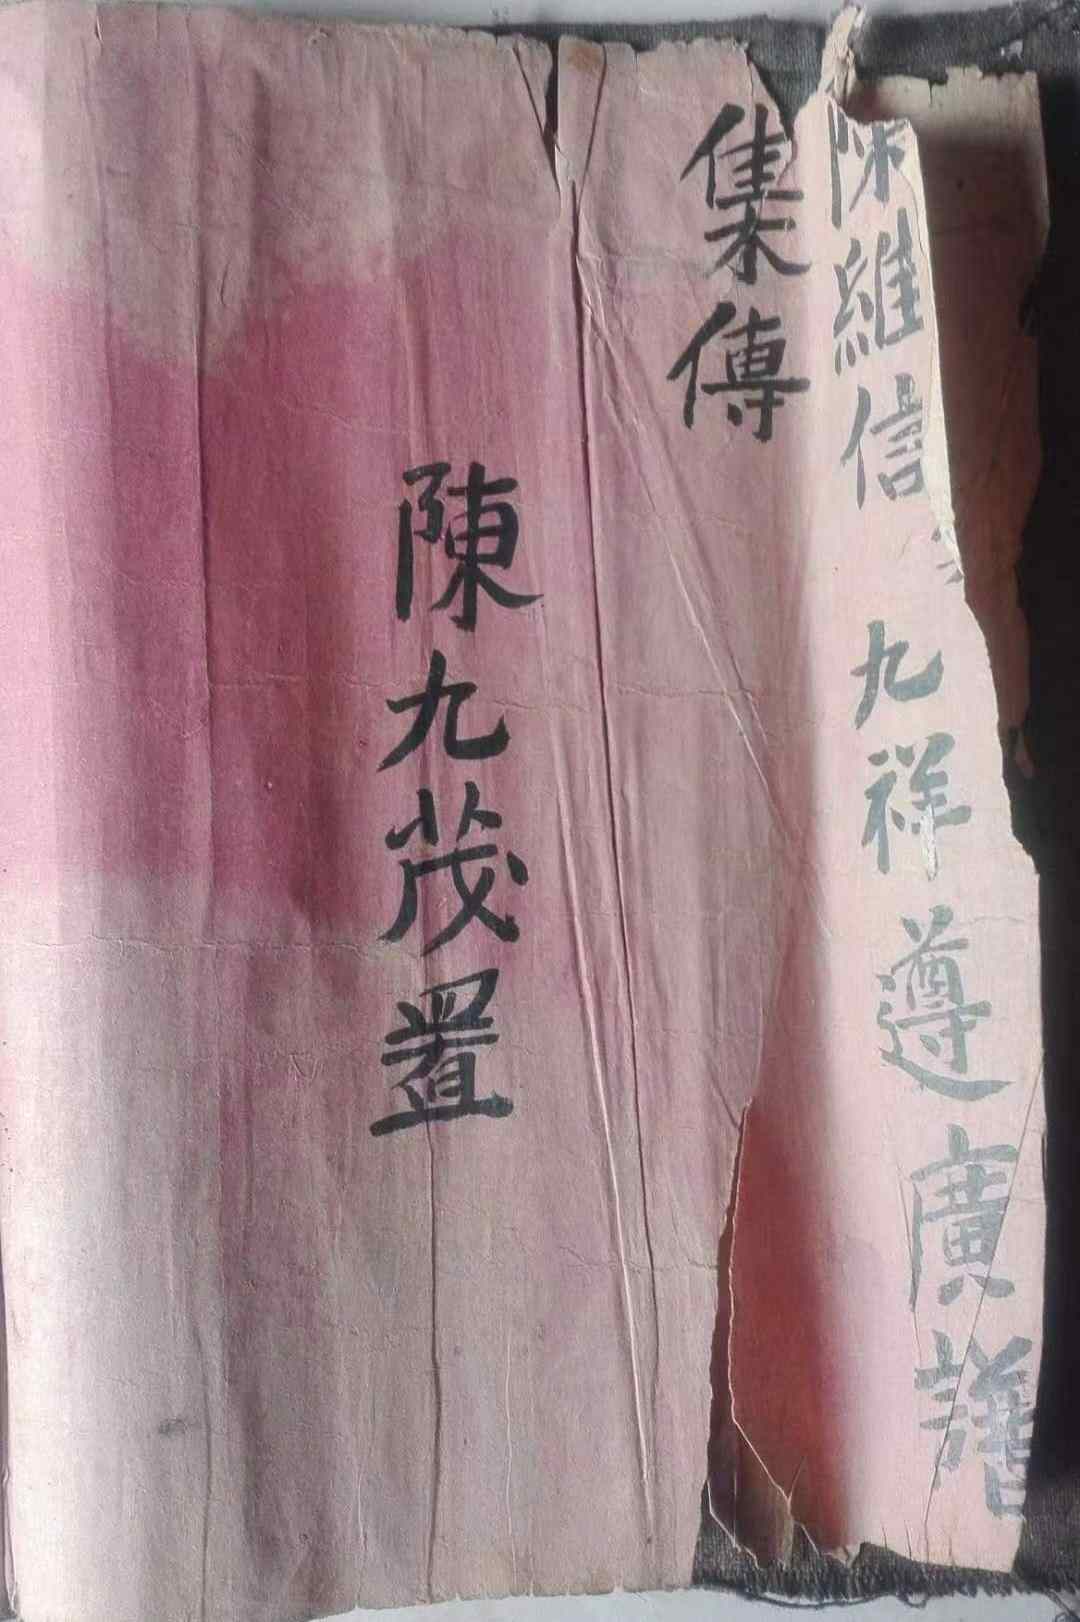 陳維信 九祥遵廣譜
集傳
陳九茂置